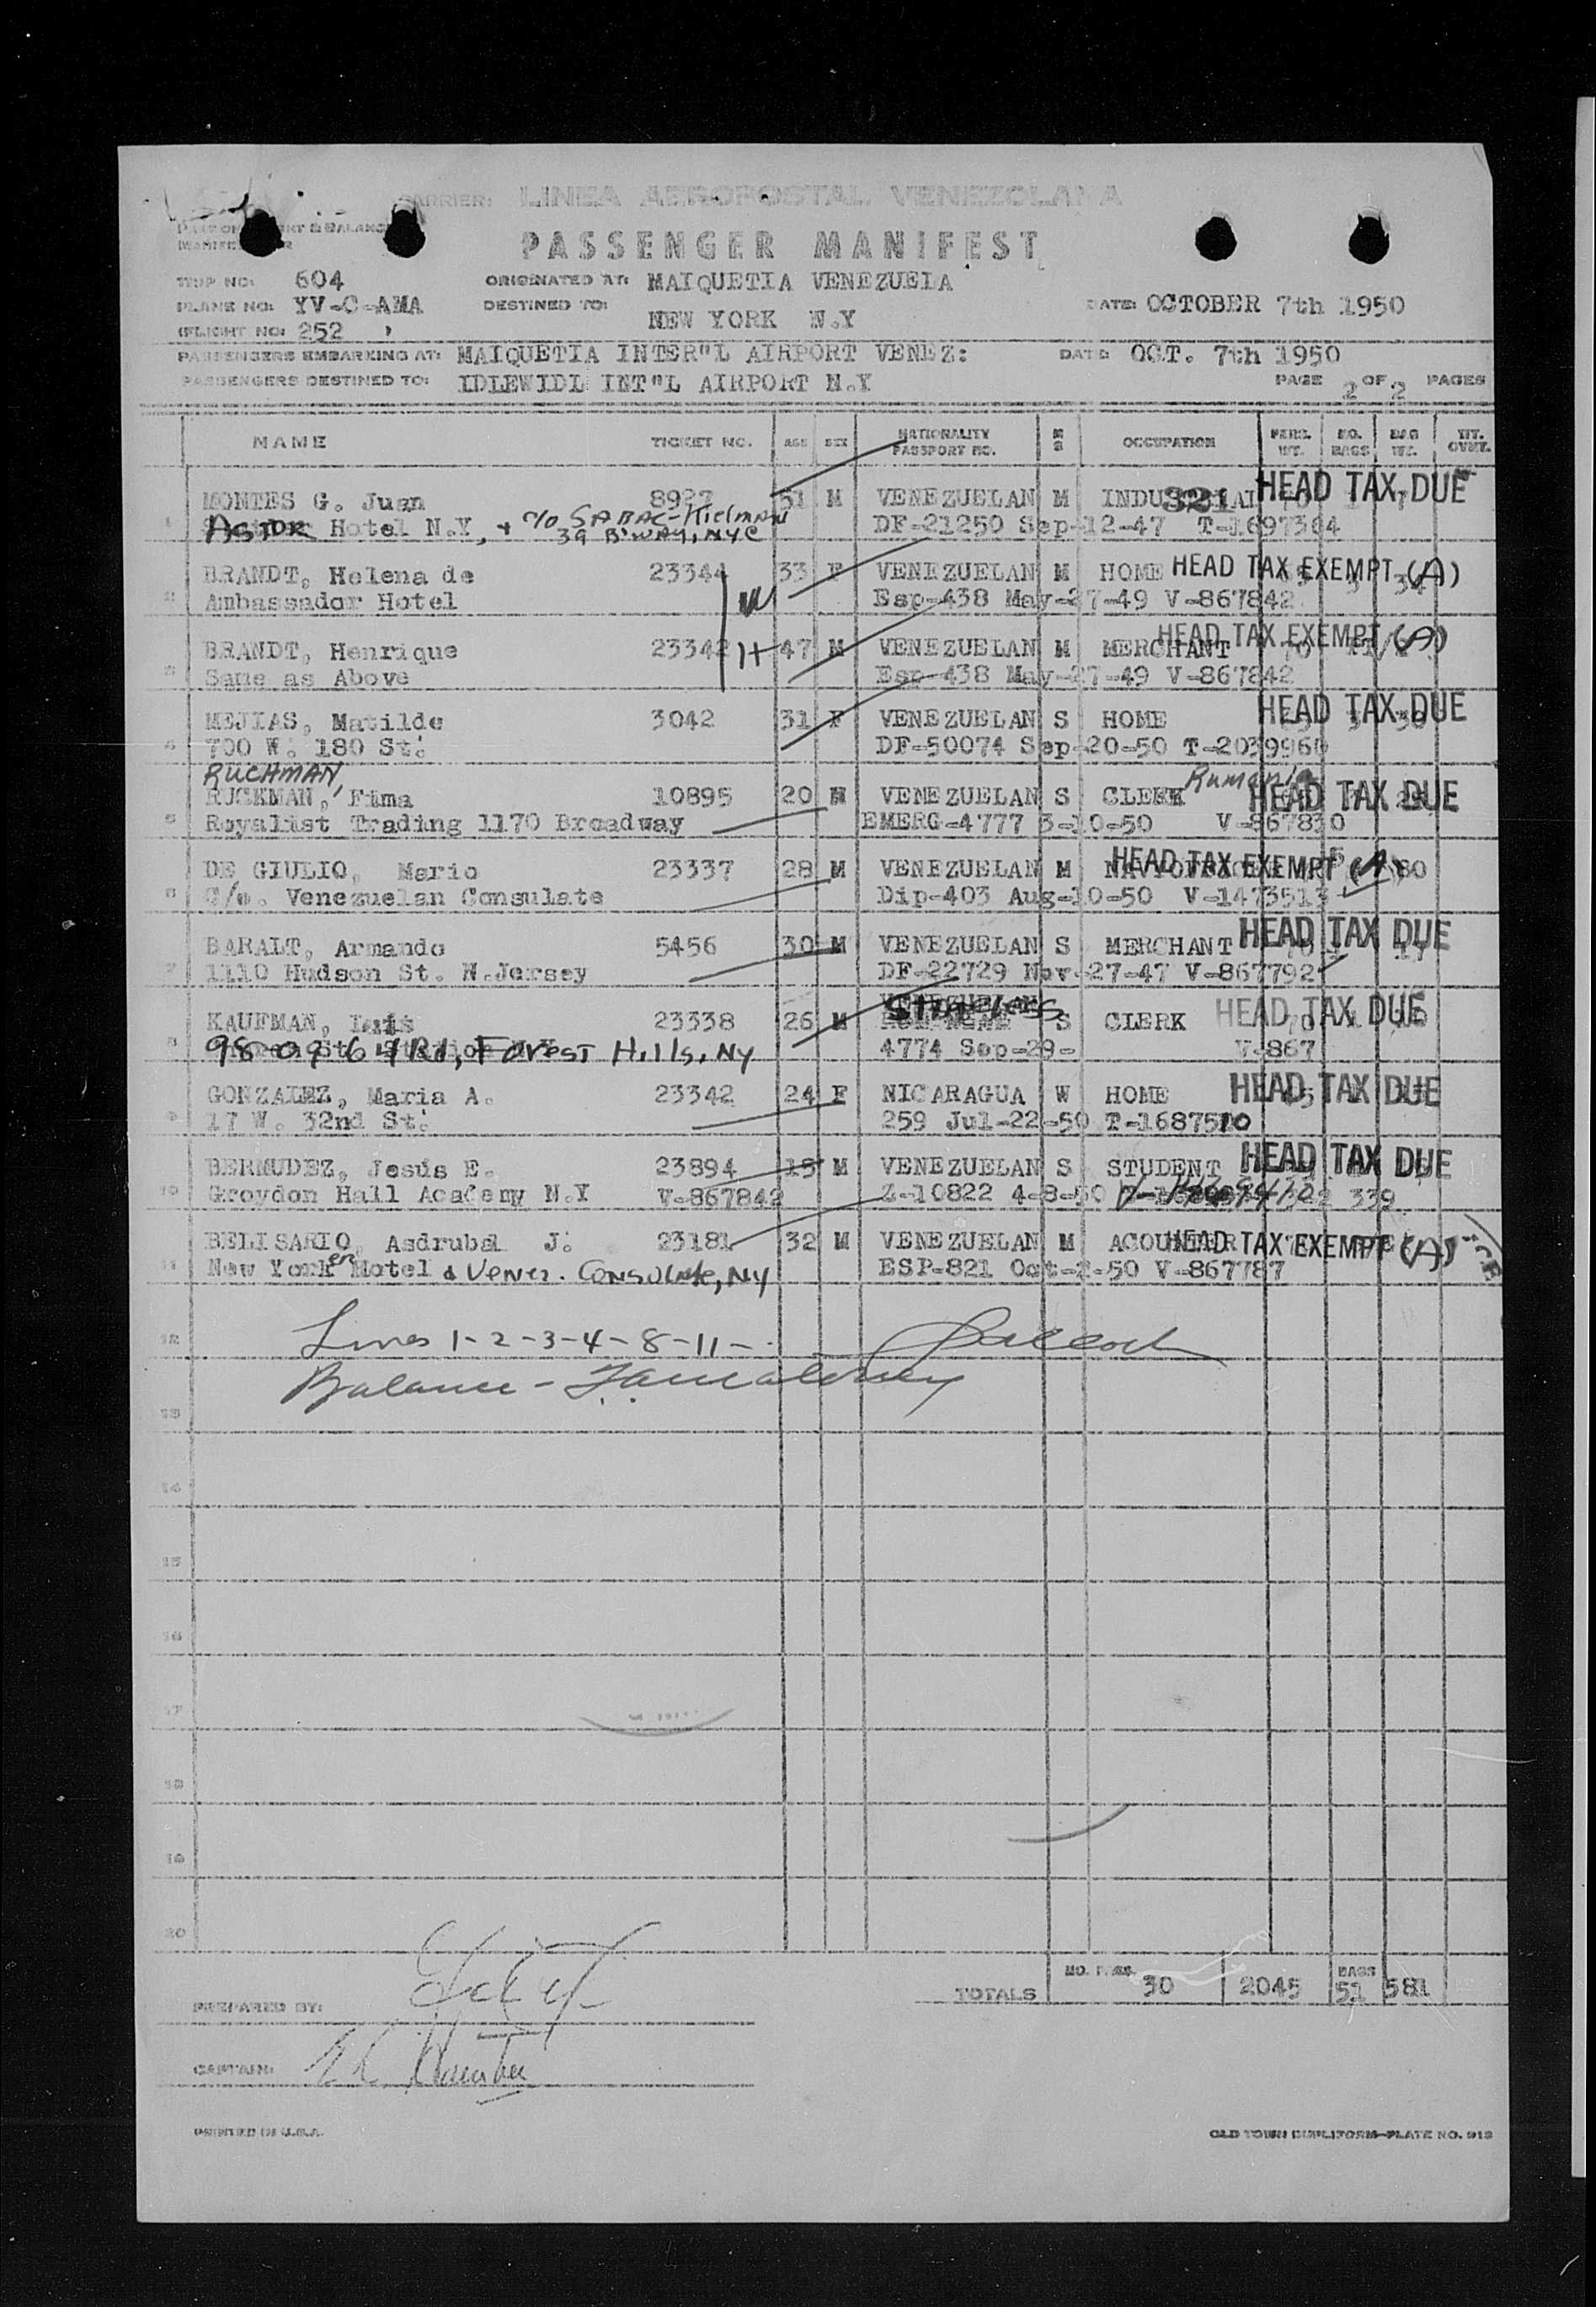 CARRIER: LINEA AEROPOSTAL VENEZOLANA
PASSENGER MANIFEST
TRIP NO: 604 ORIGINATED AT: MAIQUETIA VENEZUELA
PLANE NO: YV-C-AMA DESTINED TO: NEW YORK N.Y DATE: OCTOBER 7th 1950
(FLIGHT NO: 252 )
PASSENGERS EMBARKING AT: MAIQUETIA INTER"L AIRPORT VENEZ: DATE: OCT. 7th 1950
PASSENGERS DESTINED TO: IDLEWIDL INT"L AIRPORT N.Y PAGE 2 OF 2 PAGES
NAME TICKET NO. AGE SEX NATIONALITY PASSPORT NO. M S OCCUPATION PERS. WT. NO. BAGS BAG WT. WT. OVWT.
MONTES G. Juan 8927 51 M VENEZUELAN M 321 HEAD TAX DUE
1 ASTOR Hotel N.Y, + c/o SABAC-Kielman DF-21250 Sep-12-47 T-1697364
39 B'WAY, NYC
BRANDT, Helena de 23344 33 F VENEZUELAN M HOME HEAD TAX EXEMPT (A)
2 Ambassador Hotel W Esp-438 May-27-49 V-867842
BRANDT, Henrique 23342 H 47 M VENEZUELAN M MERCHANT HEAD TAX EXEMPT (A)
3 Same as Above Esp-438 May-27-49 V-867842
MEJIAS, Matilde 3042 31 F VENEZUELAN S HOME HEAD TAX DUE
4 700 W. 180 St. DF-50074 Sep-20-50 T-2039960
RUCHMAN, Rumania
RUCKMAN, Fima 10895 20 M VENEZUELAN S CLERK HEAD TAX DUE
5 Royalist Trading 1170 Broadway EMERG-4777 3-10-50 V-867830
DE GIULIO, Mario 23337 28 M VENEZUELAN M HEAD TAX EXEMPT (A) 60
6 C/o. Venezuelan Consulate Dip-403 Aug-10-50 V-1473513
BARALT, Armando 5456 30 M VENEZUELAN S MERCHANT HEAD TAX DUE
7 1110 Hudson St. N.Jersey DF-22729 Nov-27-47 V-867792
KAUFMAN, Luis 23338 26 M Stateless S CLERK HEAD TAX DUE
8 98-09 64 Rd, Forest Hills, NY 4774 Sep-29- V-867
GONZALEZ, Maria A. 23342 24 F NICARAGUA W HOME HEAD TAX DUE
9 17 W. 32nd St. 259 Jul-22-50 T-1687510
BERMUDEZ, Jesús E. 23894 15 M VENEZUELAN S STUDENT HEAD TAX DUE
10 Croydon Hall Academy N.Y V-867842 Z-10822 4-8-50 339
BELISARIO, Asdrubal J. 23181 32 M VENEZUELAN M HEAD TAX EXEMPT (A)
11 New Yorker Hotel & Venez. Consulate, NY ESP-821 Oct-2-50 V-867787
12 Lines 1-2-3-4-8-11-
Balance -
13
14
15
16
17
18
19
20
TOTALS NO. PASS. 30 2045 BAGS 51 581
PREPARED BY:
CAPTAIN:
PRINTED IN U.S.A. OLD TOWN DUPLIFORM-PLATE NO. 918